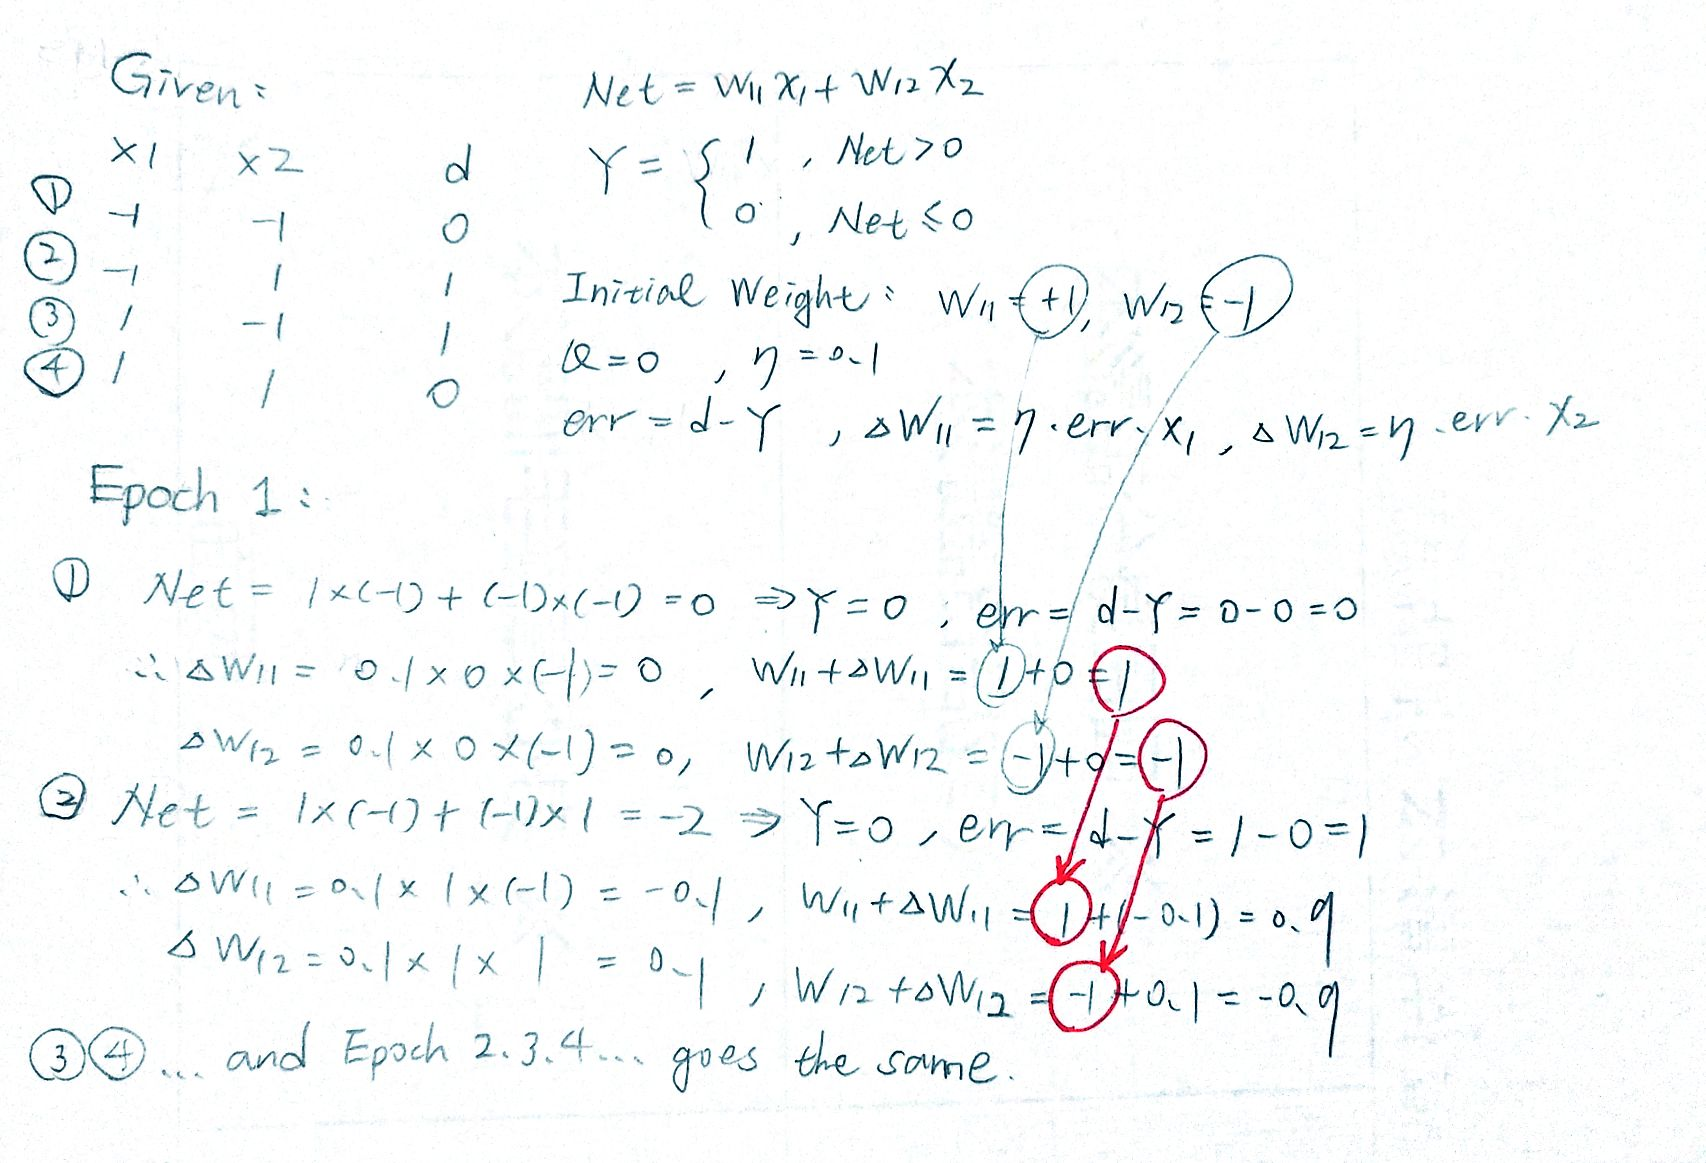 Given:
x1 x2 d
① -1 -1 0
② -1 1 1
③ 1 -1 1
④ 1 1 0
Net = W11 X1 + W12 X2
Y = { 1 , Net > 0
0 , Net ≤ 0
Initial Weight: W11 = +1, W12 = -1
θ = 0 , η = 0.1
err = d - Y , ΔW11 = η · err · X1 , ΔW12 = η · err · X2
Epoch 1:
① Net = 1×(-1) + (-1)×(-1) = 0 ⇒ Y = 0 , err = d-Y = 0-0 = 0
∴ ΔW11 = 0.1 × 0 × (-1) = 0 , W11 + ΔW11 = 1 + 0 = 1
ΔW12 = 0.1 × 0 × (-1) = 0, W12 + ΔW12 = -1 + 0 = -1
② Net = 1×(-1) + (-1)×1 = -2 ⇒ Y = 0 , err = d-Y = 1-0 = 1
∴ ΔW11 = 0.1 × 1 × (-1) = -0.1 , W11 + ΔW11 = 1 + (-0.1) = 0.9
ΔW12 = 0.1 × 1 × 1 = 0.1 , W12 + ΔW12 = -1 + 0.1 = -0.9
③④ ... and Epoch 2.3.4... goes the same.